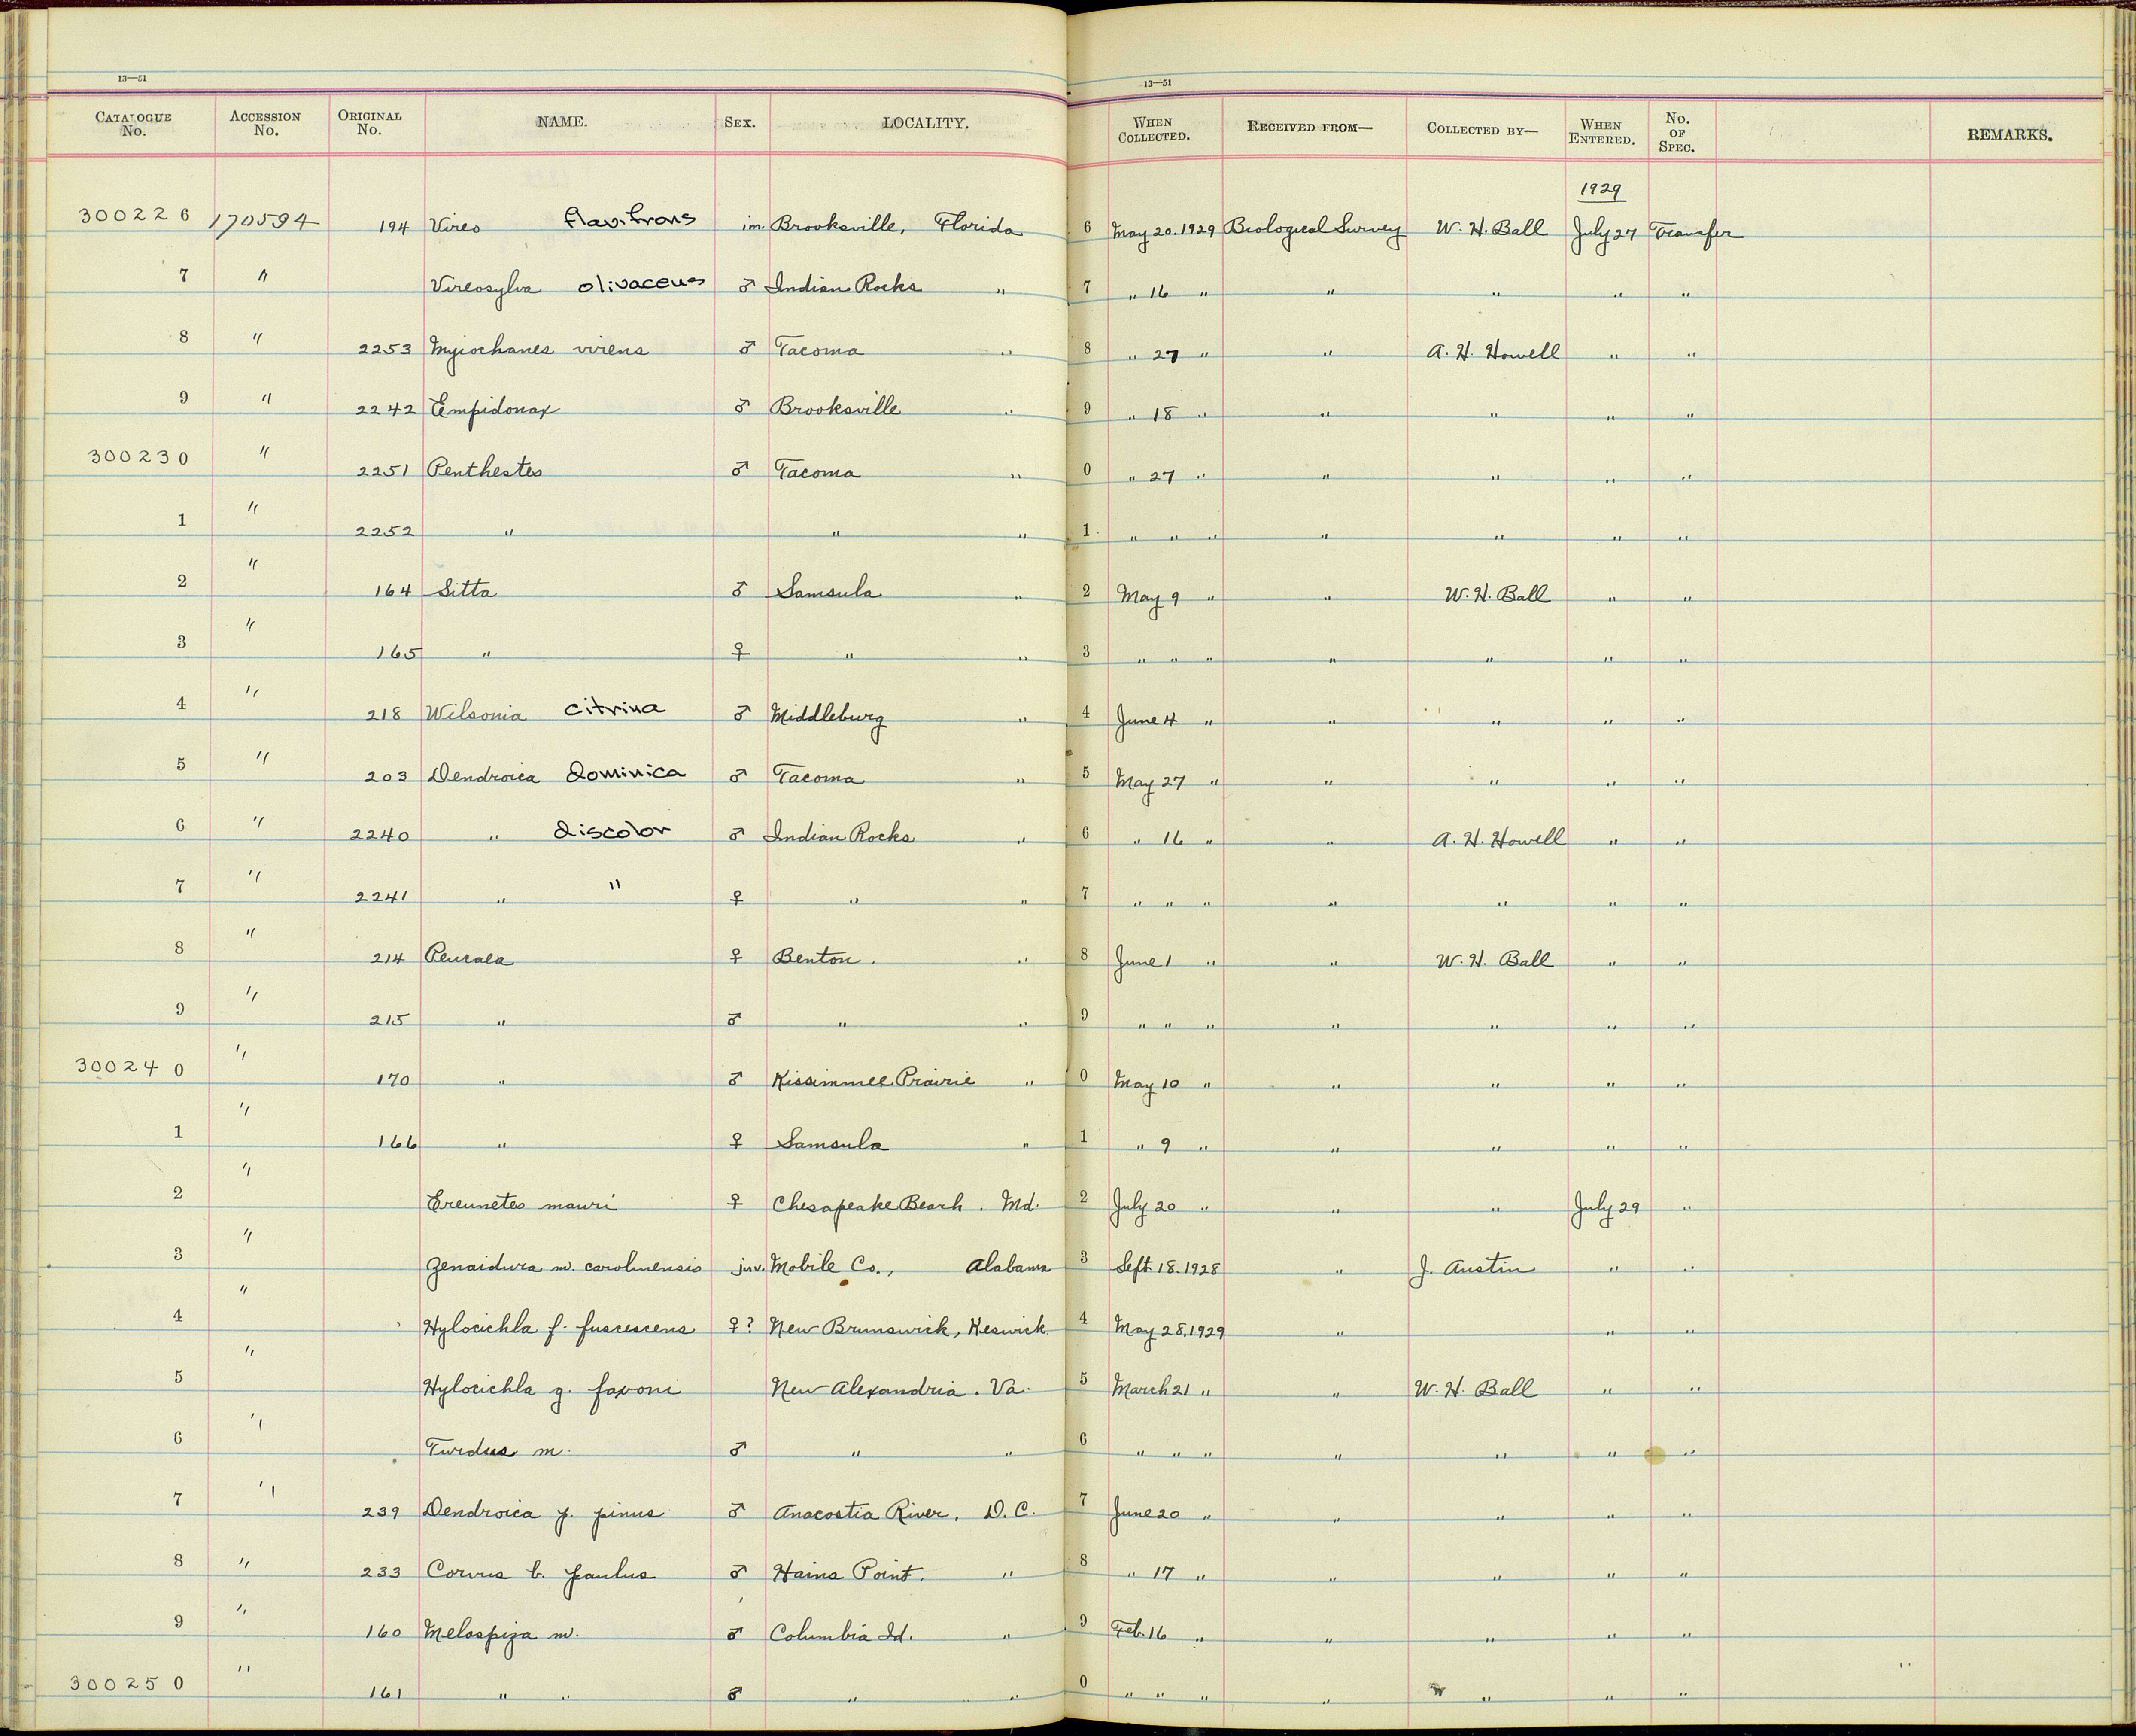 13—51 13—51
CATALOGUE No. ACCESSION No. ORIGINAL No. NAME. SEX. LOCALITY. WHEN COLLECTED. RECEIVED FROM— COLLECTED BY— WHEN ENTERED. No. OF SPEC. REMARKS.
1929
300226 170594 194 Vireo flavifrons im. Brooksville, Florida 6 May 20.1929 Biological Survey W. H. Ball July 27 Transfer
7 " Vireosylva olivaceus ♂ Indian Rocks " 7 " 16 " " " " "
8 " 2253 Myiochanes virens ♂ Tacoma " 8 " 27 " " A. H. Howell " "
9 " 2242 Empidonax ♂ Brooksville " 9 " 18 " " " " "
300230 " 2251 Penthestes ♂ Tacoma " 0 " 27 " " " " "
1 " 2252 " " " 1 " " " " " " "
2 " 164 Sitta ♂ Samsula " 2 May 9 " " W. H. Ball " "
3 " 165 " ♀ " " 3 " " " " " " "
4 " 218 Wilsonia citrina ♂ Middleburg " 4 June 4 " " " " "
5 " 203 Dendroica dominica ♂ Tacoma " 5 May 27 " " " " "
6 " 2240 " discolor ♂ Indian Rocks " 6 " 16 " " A. H. Howell " "
7 " 2241 " " ♀ " " 7 " " " " " " "
8 " 214 Peucaea ♀ Benton. " 8 June 1 " " W. H. Ball " "
9 " 215 " ♂ " " 9 " " " " " " "
300240 " 170 " ♂ Kissimmee Prairie " 0 May 10 " " " " "
1 " 166 " ♀ Samsula " 1 " 9 " " " " "
2 " Ereunetes mauri ♀ Chesapeake Beach. Md. 2 July 20 " " " July 29 "
3 " Zenaidura m. carolinensis juv. Mobile Co., Alabama 3 Sept 18.1928 " J. Austin " "
4 " Hylocichla f. fuscescens ♀? New Brunswick, Keswick 4 May 28.1929 " " "
5 " Hylocichla g. faxoni New Alexandria. Va. 5 March 21 " " W. H. Ball " "
6 " Turdus m. ♂ " " 6 " " " " " " "
7 " 239 Dendroica p. pinus ♂ Anacostia River. D. C. 7 June 20 " " " " "
8 " 233 Corvus b. paulus ♂ Hains Point. " 8 " 17 " " " " "
9 " 160 Melospiza m. ♂ Columbia Id. " 9 Feb. 16 " " " " "
300250 " 161 " " ♂ " " 0 " " " " " " "